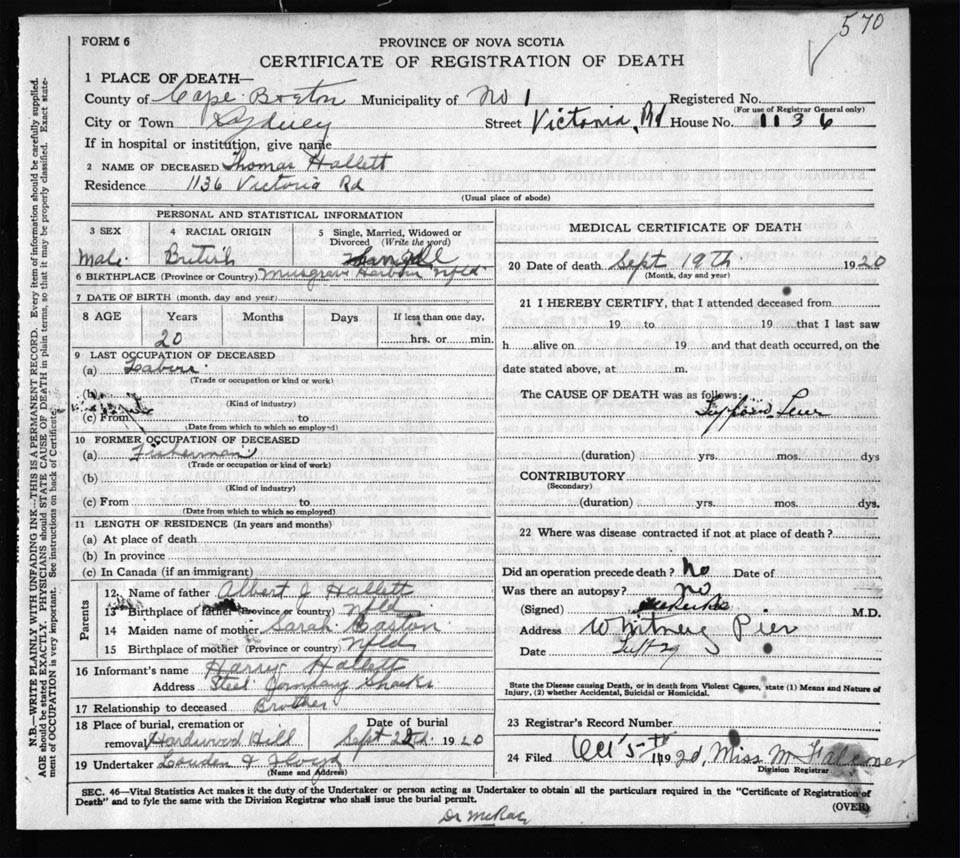 570
FORM 6
PROVINCE OF NOVA SCOTIA
CERTIFICATE OF REGISTRATION OF DEATH
1 PLACE OF DEATH—
County of Cape Breton Municipality of No 1 Registered No.
(For use of Registrar General only)
City or Town Sydney Street Victoria, Rd House No. 1136
If in hospital or institution, give name
2 NAME OF DECEASED Thomas Hallett
Residence 1136 Victoria Rd
(Usual place of abode)
PERSONAL AND STATISTICAL INFORMATION
3 SEX 4 RACIAL ORIGIN 5 Single, Married, Widowed or Divorced (Write the word)
Male British
6 BIRTHPLACE (Province or Country) Musgrave Harbour Nfld
7 DATE OF BIRTH (month, day and year)
8 AGE Years Months Days If less than one day,
20 hrs. or min.
9 LAST OCCUPATION OF DECEASED
(a)
(Trade or occupation or kind or work)
(b)
(Kind of industry)
(c) From to
(Date from which to which so employed)
10 FORMER OCCUPATION OF DECEASED
(a) Fisherman
(Trade or occupation or kind of work)
(b)
(Kind of industry)
(c) From to
(Date from which to which so employed)
11 LENGTH OF RESIDENCE (In years and months)
(a) At place of death
(b) In province
(c) In Canada (if an immigrant)
Parents
12 Name of father Albert J Hallett
13 Birthplace of father (Province or country) Nfld
14 Maiden name of mother Sarah
15 Birthplace of mother (Province or country) Nfld
16 Informant's name Harry Hallett
Address Steel Company Shacks
17 Relationship to deceased Brother
18 Place of burial, cremation or Date of burial
removal Hardwood Hill Sept 1920
19 Undertaker Louden &
(Name and Address)
MEDICAL CERTIFICATE OF DEATH
20 Date of death Sept 19th 1920
(Month, day and year)
21 I HEREBY CERTIFY, that I attended deceased from
19 to 19 that I last saw
h alive on 19 and that death occurred, on the
date stated above, at m.
The CAUSE OF DEATH was as follows:
Typhoid Fever
(duration) yrs. mos. dys
CONTRIBUTORY
(Secondary)
(duration) yrs. mos. dys.
22 Where was disease contracted if not at place of death?
Did an operation precede death? No Date of
Was there an autopsy? No
(Signed) M.D.
Address Whitney Pier
Date
State the Disease causing Death, or in death from Violent Causes, state (1) Means and Nature of
Injury, (2) whether Accidental, Suicidal or Homicidal.
23 Registrar's Record Number
24 Filed Oct 5th 1920, Miss M
Division Registrar
SEC. 46—Vital Statistics Act makes it the duty of the Undertaker or person acting as Undertaker to obtain all the particulars required in the "Certificate of Registration of
Death" and to fyle the same with the Division Registrar who shall issue the burial permit.
(OVER)
Dr McRae
N.B.—WRITE PLAINLY WITH UNFADING INK—THIS IS A PERMANENT RECORD. Every item of information should be carefully supplied.
AGE should be stated EXACTLY. PHYSICIANS should STATE CAUSE OF DEATH in plain terms, so that it may be properly classified. Exact state-
ment of OCCUPATION is very important. See instructions on back of Certificate.